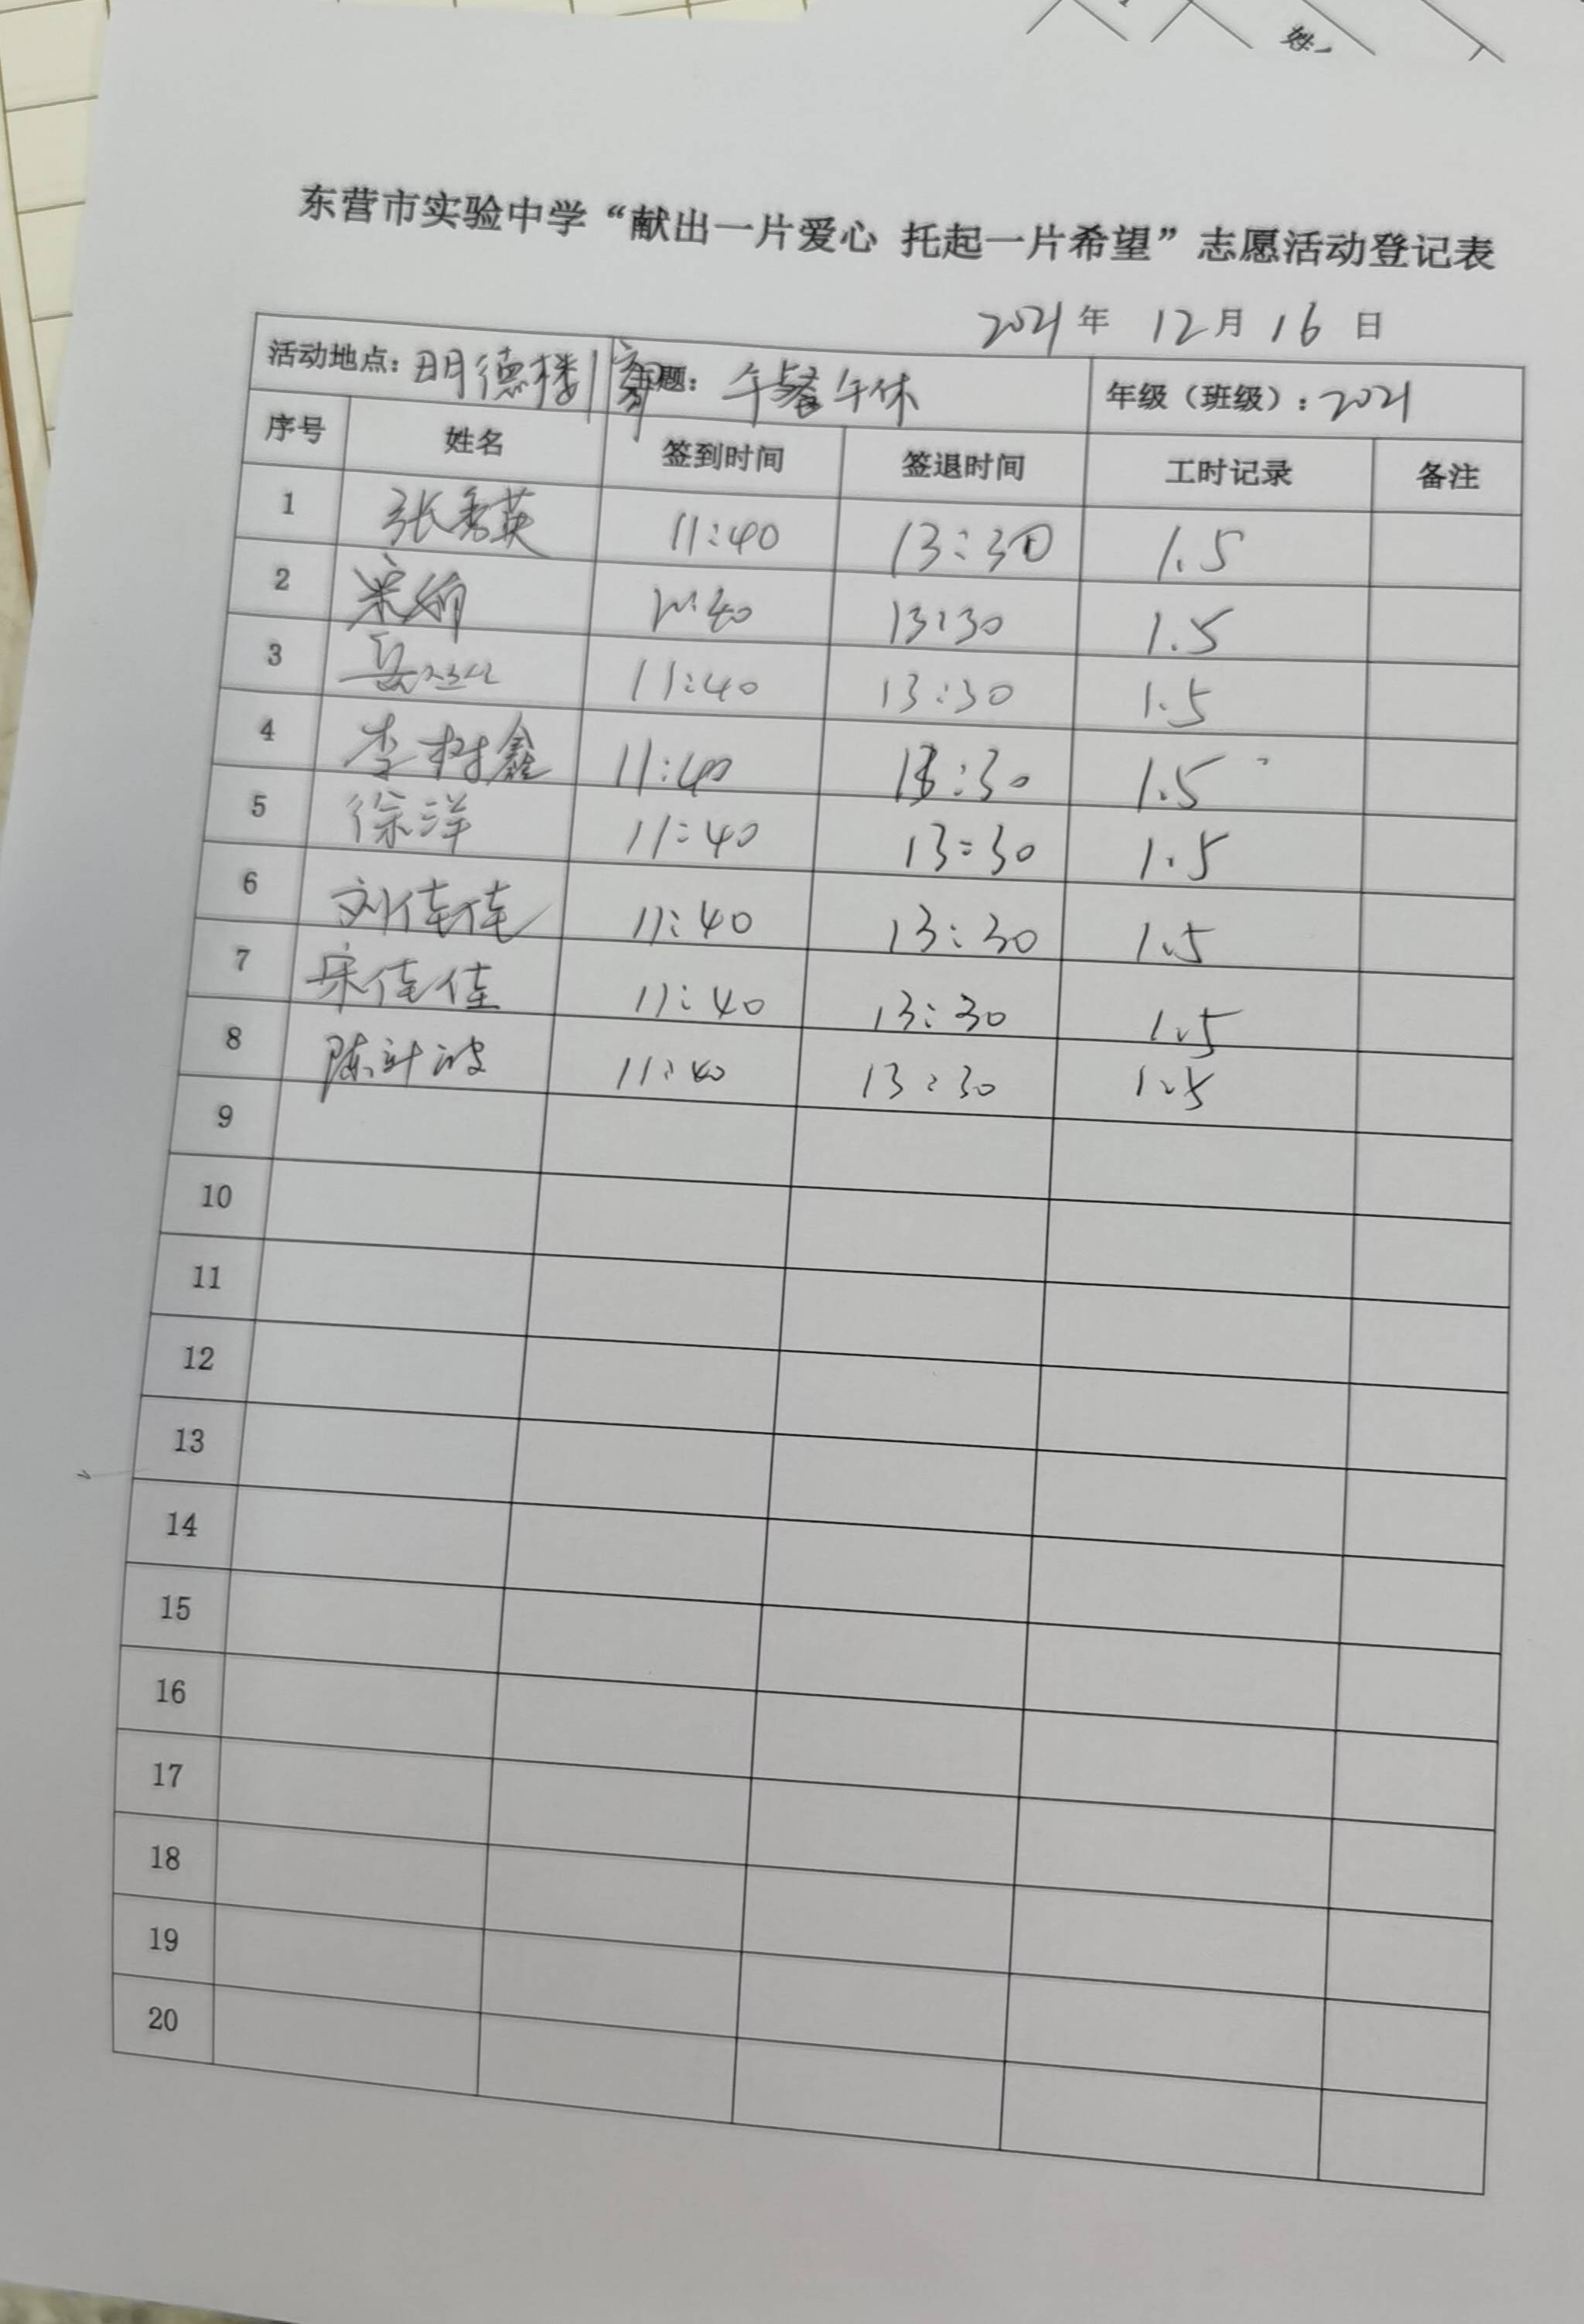 姓
东营市实验中学“献出一片爱心 托起一片希望”志愿活动登记表
2021年 12月16日
活动地点:明德楼 主题: 午餐午休 年级(班级):2021
序号 姓名 签到时间 签退时间 工时记录 备注
1 张秀英 11:40 13:30 1.5
2 11:40 13:30 1.5
3 11:40 13:30 1.5
4 李树鑫 11:40 13:30 1.5
5 徐洋 11:40 13:30 1.5
6 刘佳佳 11:40 13:30 1.5
7 宋佳佳 11:40 13:30 1.5
8 陈计波 11:40 13:30 1.5
9
10
11
12
13
14
15
16
17
18
19
20